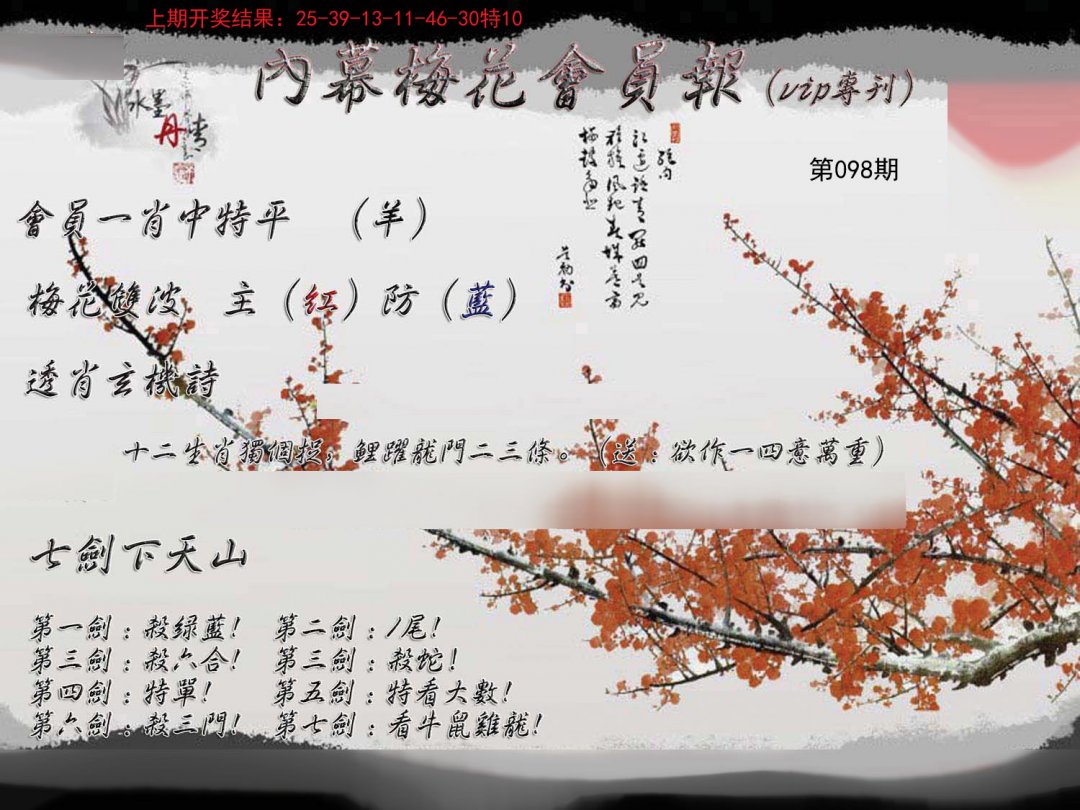 上期开奖结果：25-39-13-11-46-30特10
內幕梅花會員報（vip專刊）
水墨
丹情
第098期
會員一肖中特平 （羊）
梅花雙波 主（紅）防（藍）
透肖玄機詩
十二生肖獨個捉，鯉躍龍門二三條。（送：欲作一四意萬重）
七劍下天山
第一劍：殺绿藍！ 第二劍：/尾！
第三劍：殺六合！ 第三劍：殺蛇！
第四劍：特單！ 第五劍：特看大數！
第六劍：殺三門！ 第七劍：看牛鼠雞龍！